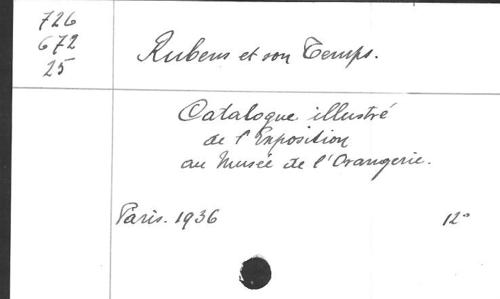 726
672
25
Rubens et son Temps.
Catalogue illustré
de l'Exposition
au Musée de l'Orangerie.
Paris. 1936
12°